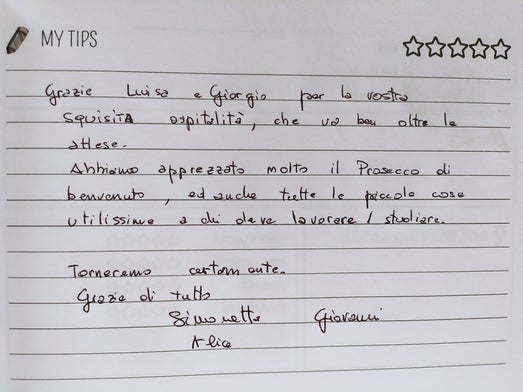 MY TIPS
Grazie Luisa e Giorgio per la vostra
squisita ospitalità, che va ben oltre le
attese.
Abbiamo apprezzato molto il Prosecco di
benvenuto, ed anche tutte le piccole cose
utilissime a chi deve lavorare / studiare.
Torneremo certamente.
Grazie di tutto
Simonetta Giovanni
Alice